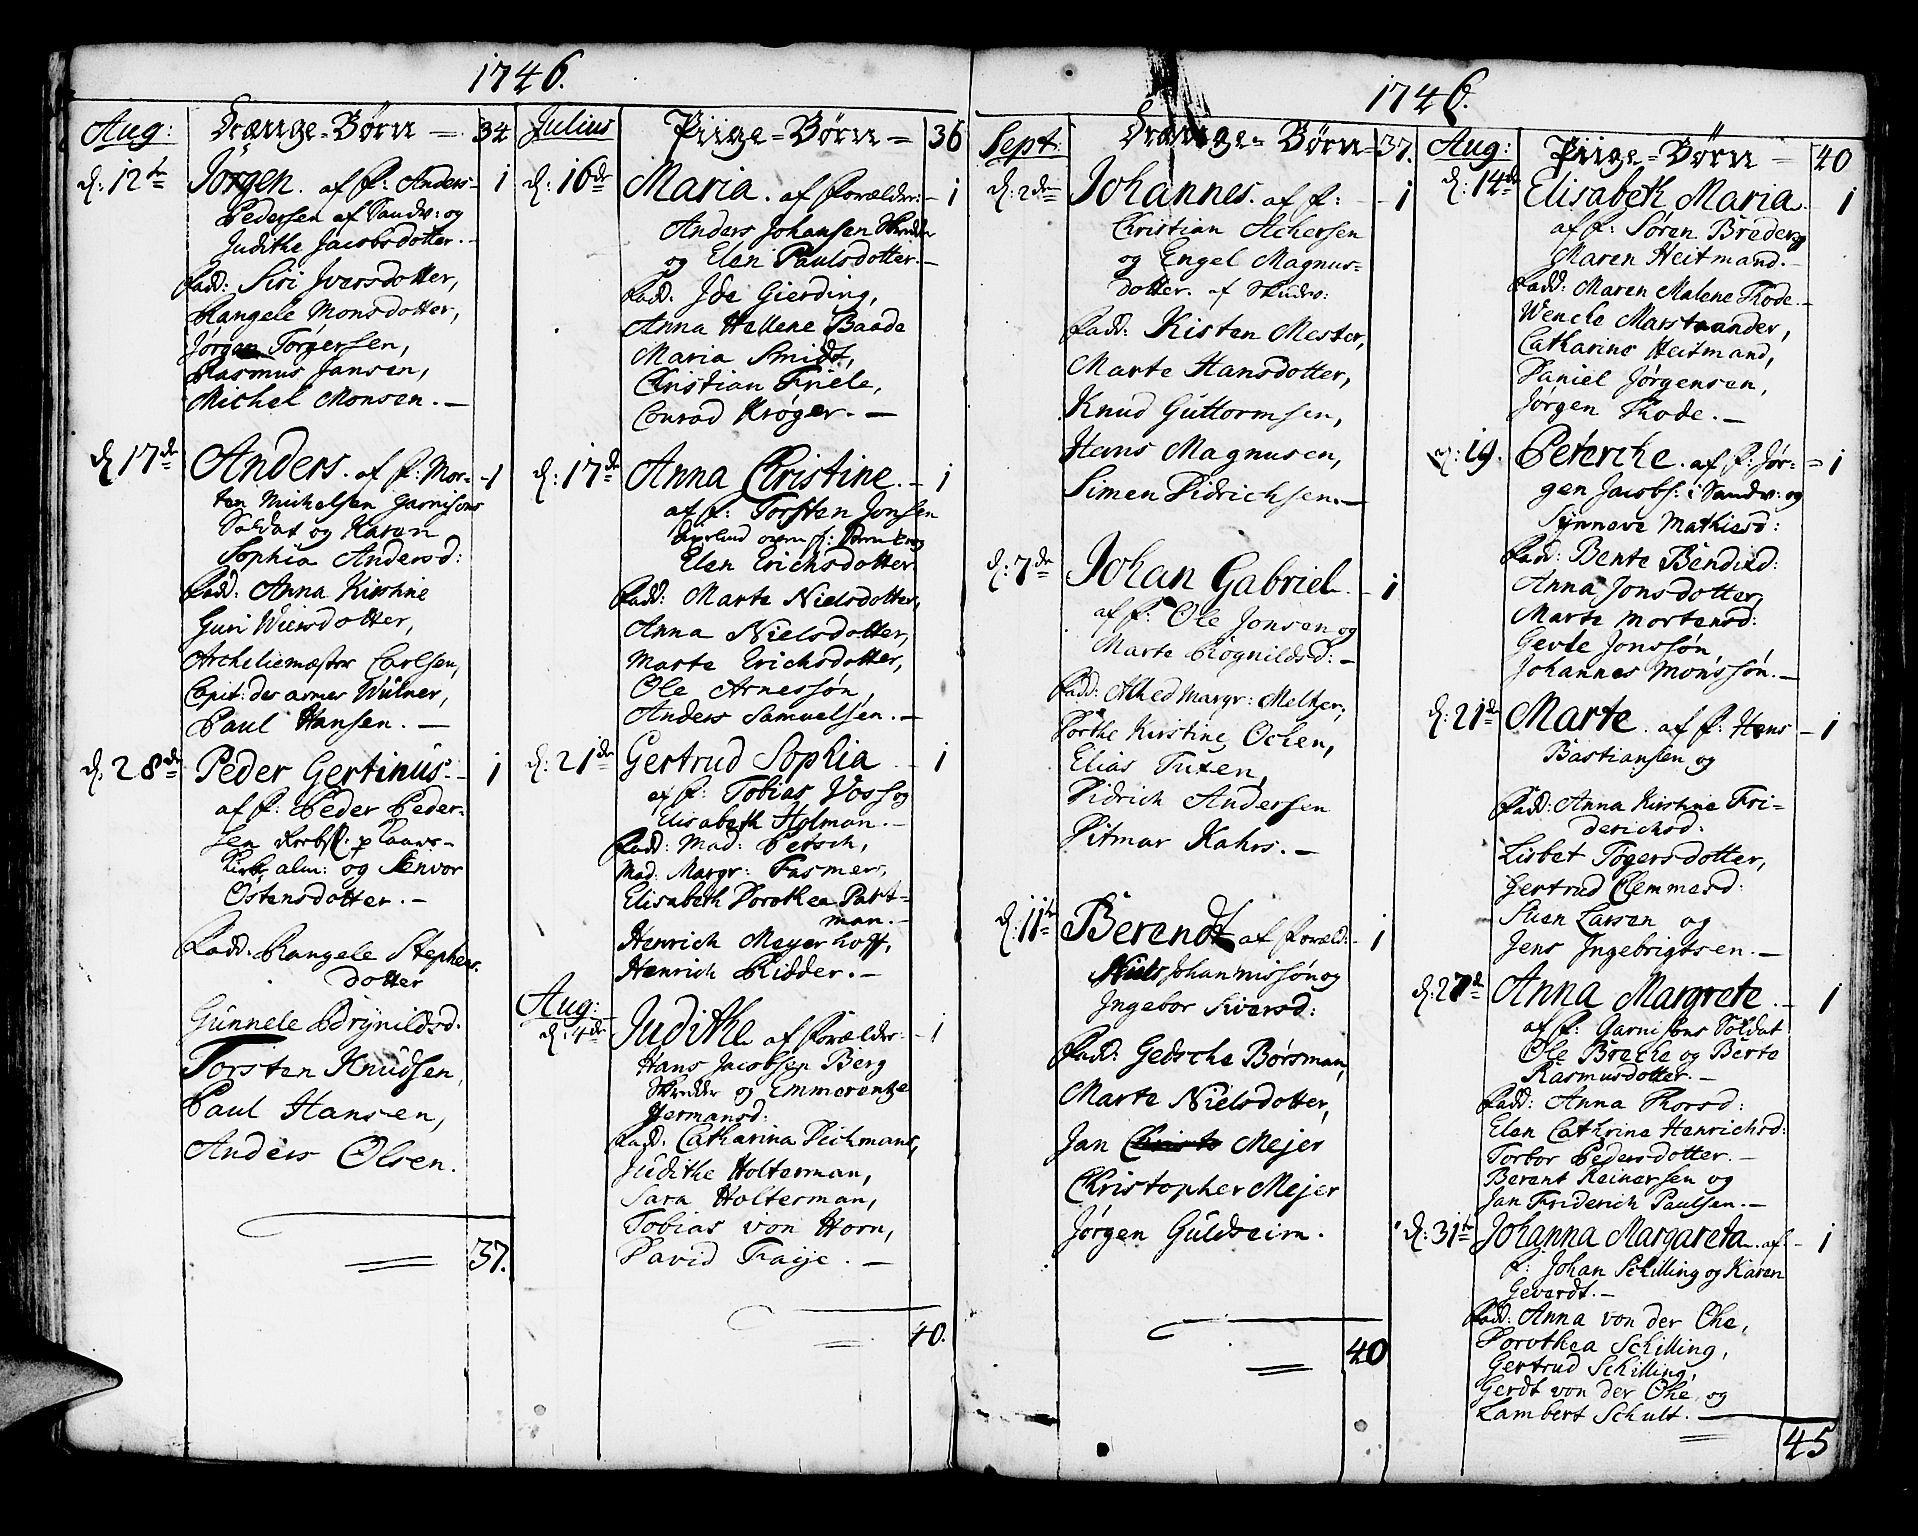 1746.
Aug: Drænge-Børn 34
d: 12te Jørgen. af F: Anders 1
Pedersen af Sandv: og
Judithe Jacobsdotter.
Fadd: Siri Iversdotter,
Rangele Monsdotter,
Jørgen Tørgersen,
Rasmus Jansen,
Michel Monsen.
d 17de Anders. af F: Mor- 1
ten Michelsen Garnisons
Soldat og Karen
Sophia Andersd:
Fadd: Anna Kirstine
Guri Wiersdotter,
Archeliemæster Carlsen,
Capit: des armes Wülner,
Paul Hansen.
d. 28de Peder Gertinus. 1
af F: Peder Peder-
sen
alm: og Senvor
Ostensdotter.
Fadd. Rangele Stephens
dotter
Gunnele Brynildsd.
Torsten Knudsen,
Paul Hansen,
Anders Olsen.
37.
Julius Piige-Børn 36
d: 16de Maria. af Forælder: 1
Anders Johansen Skredder
og Elen Paulsdotter.
Fadd. Ide Gierding,
Anna Hellene Baade
Maria Smidt,
Christian Friele,
Conrad Krøger.
d: 17de Anna Christine. 1
af F: Torsten Jonsen
Elen Erichsdotter
Fadd: Marte Nielsdotter,
Anna Nielsdotter,
Marte Erichsdotter,
Ole Arnessøn,
Anders Samuelsen.
d: 21de Gertrud Sophia 1
af F: Tobias Voss og
Elisabeth Holman.
Fadd: Mad: Petsch,
Mad: Margr: Fasmer,
Elisabeth Dorothea Part-
man.
Henrich Meyerhoff,
Henrich Ridder.
Aug:
d. 4de Judithe af Forælder: 1
Hans Jacobsen Berg
Skredder og Emmerentze
Hermansd:
Fadd: Catharina Dichmans,
Judithe Holterman,
Sara Holterman,
Tobias von Horn,
David Fraye.
40.
1746.
Sept: Drænge-Børn 37.
d: 2den Johannes. af F: 1
Christian Achersen
og Engel Magnus-
dotter. af Skudv:
Fadd: Kisten Mester,
Marte Hansdotter,
Knud Guttormsen,
Hans Magnusen,
Simen Didrichsen.
d: 7de Johan Gabriel. 1
af F: Ole Jonsen og
Marte Rognildsd:
Fadd: Alhed Margr: Melher,
Dorthe Kirstine Ochen,
Elias Tuxen,
Didrich Andersen
Ditmar Kahrs.
d: 11te Berendt af Foræld: 1
Niels Johannissøn og
Ingebor Siversd:
Fadd: Gedsche Børsman,
Marte Nielsdotter,
Jan Mejer
Christopher Mejer
Jørgen Guldheim.
40
Aug: Piige-Børn 40
d: 14de Elisabeth Maria. 1
af F: Søren Breder og
Maren Heitmand.
Fadd: Maren Malene Thode.
Wenche Marstrander,
Catharine Heitmand,
Daniel Jørgensen,
Jørgen Thode.
d: 19. Peterche. af F: Jør- 1
gen Jacobs: i Sandv: og
Synneve Mathiesd:
Fadd: Bente Bendixd:
Anna Jonsdotter,
Marte Mortensd:
Gevte Jonssøn,
Johannes Monssøn.
d: 21de Marte. af F: Hans 1
Bastiansen og
Fadd: Anna Kirstine Fri-
derichsd:
Lisbet Togersdotter,
Gertrud Clemmesd:
Suen Larsen og
Jens Ingebrigtsen.
d: 27de Anna Margrete 1
af F: Garnisons Soldat
Ole Breche og Berte
Rasmusdotter.
Fadd: Anna Thorsd:
Elen Cathrine Henrichsd:
Torbor Pedersdotter.
Berent Reinersen og
Jan Friderich Paulsen.
d: 31te Johanna Margareta. af 1
F: Johan Schilling og Karen
Geverdt.
Fadd: Anna von der Ohe,
Dorothea Schilling,
Gertrud Schilling,
Gerdt von der Ohe og
Lambert Schult.
45